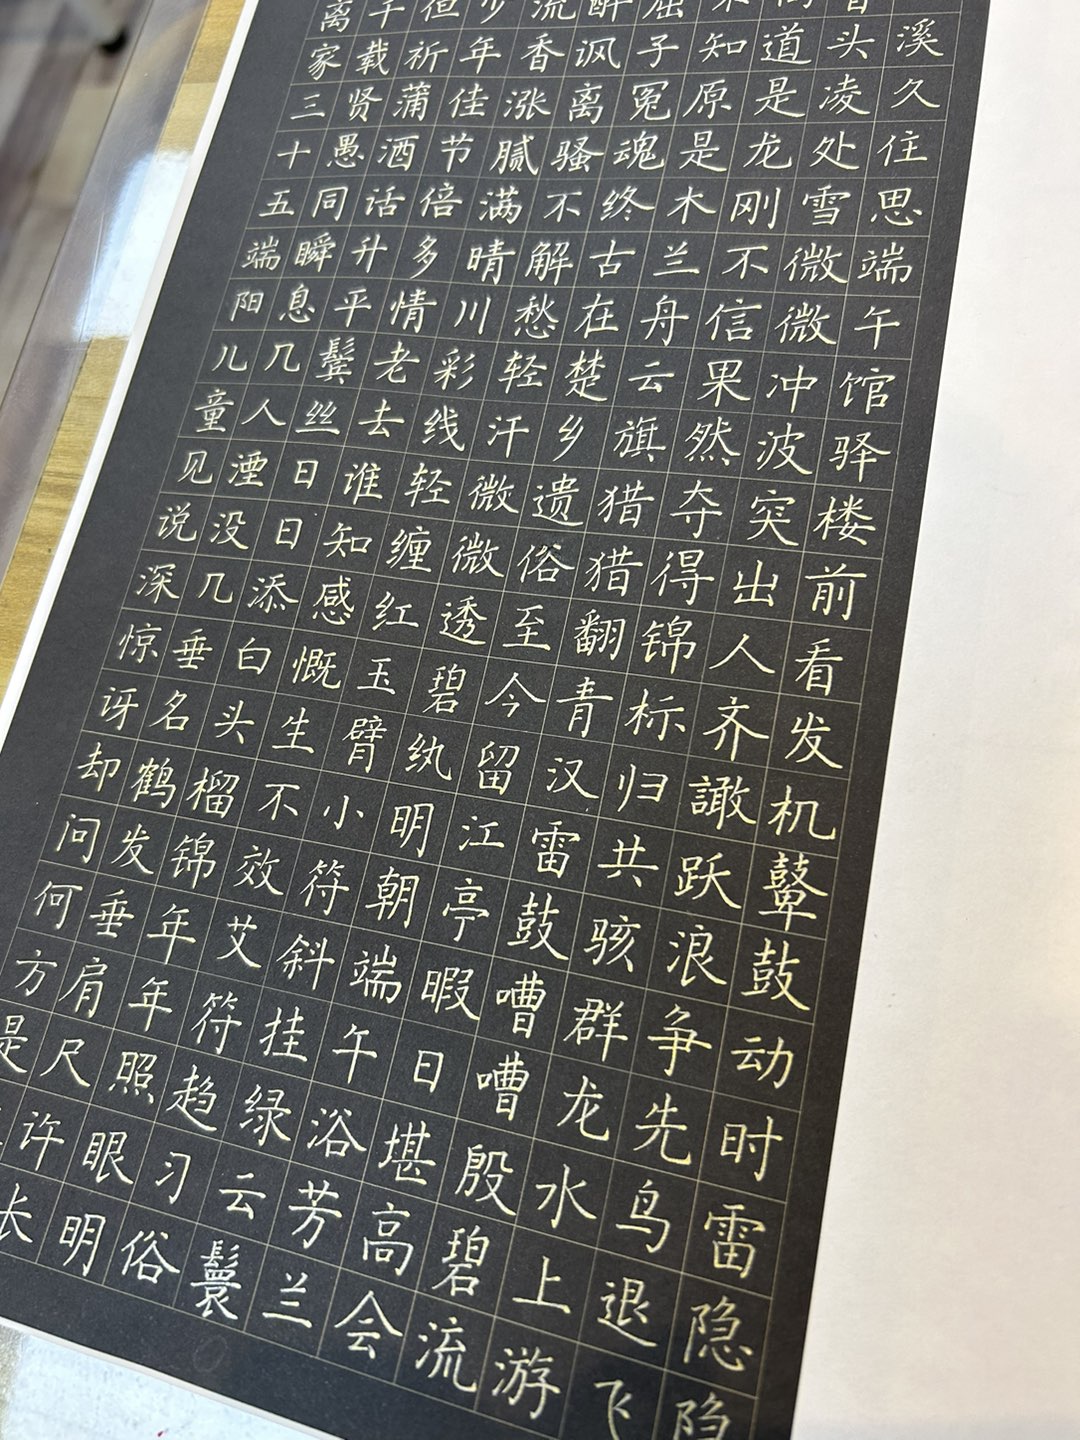 溪久住思端午馆驿楼前看发机鼙鼓动时雷隐隐
头凌处雪微微冲波突出人齐譀跃浪争先鸟退飞
道是龙刚不信果然夺得锦标归共骇群龙水上游
知原是木兰舟云旗猎猎翻青汉雷鼓嘈嘈殷碧流
屈子冤魂终古在楚乡遗俗至今留江亭暇日堪高会
醉讽离骚不解愁轻汗微微透碧纨明朝端午浴芳兰
流香涨腻满晴川彩线轻缠红玉臂小符斜挂绿云鬟
少年佳节倍多情老去谁知感慨生不效艾符趋习俗
但祈蒲酒话升平鬓丝日日添白头榴锦年年照眼明
千载贤愚同瞬息几人湮没几垂名鹤发垂肩尺许长
离家三十五端阳儿童见说深惊讶却问何方是